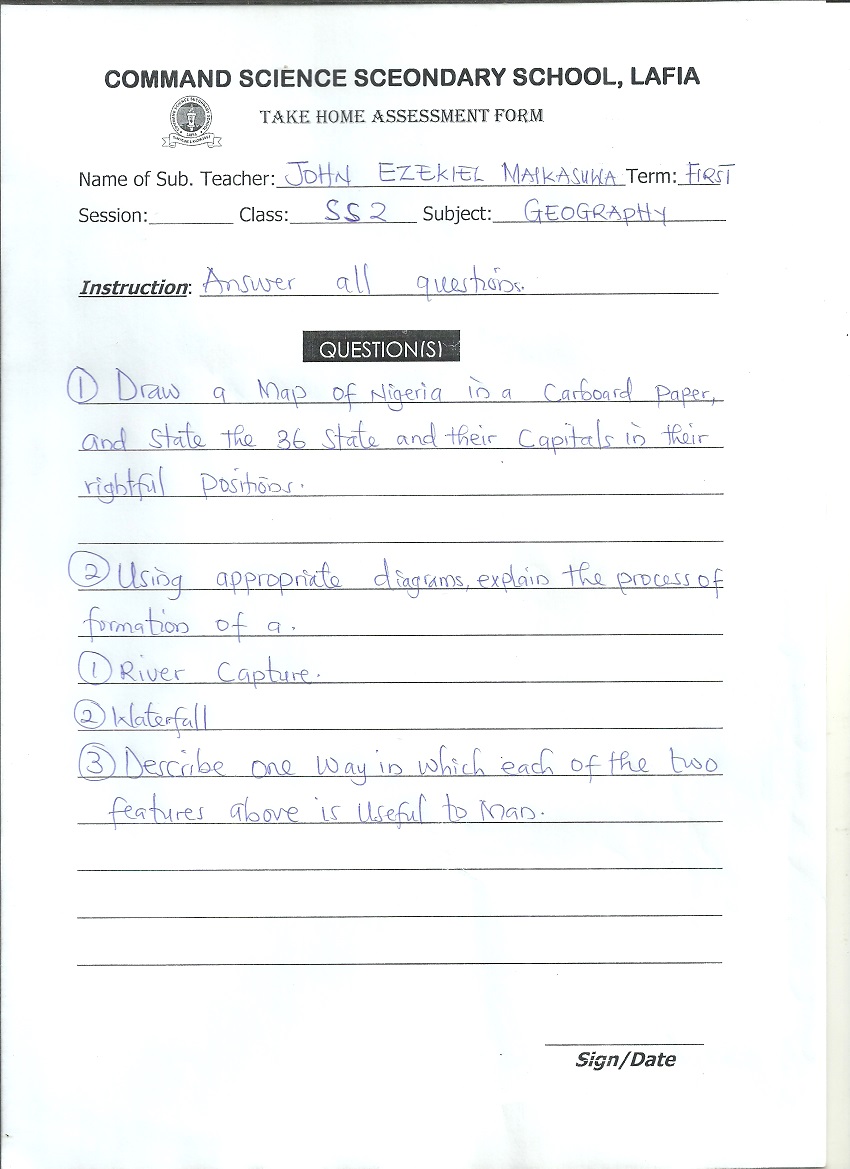 COMMAND SCIENCE SCEONDARY SCHOOL, LAFIA
TAKE HOME ASSESSMENT FORM
Name of Sub. Teacher: JOHN EZEKIEL MAIKASUWA Term: FIRST
Session:________ Class: SS2 Subject: GEOGRAPHY
Instruction: Answer all questions.
QUESTION(S)
① Draw a Map of Nigeria in a Carboard Paper,
and State the 36 State and their Capitals in their
rightful Positions.
② Using appropriate diagrams, explain the process of
formation of a.
① River Capture.
② Waterfall
③ Describe one way in which each of the two
features above is useful to Man.
Sign/Date